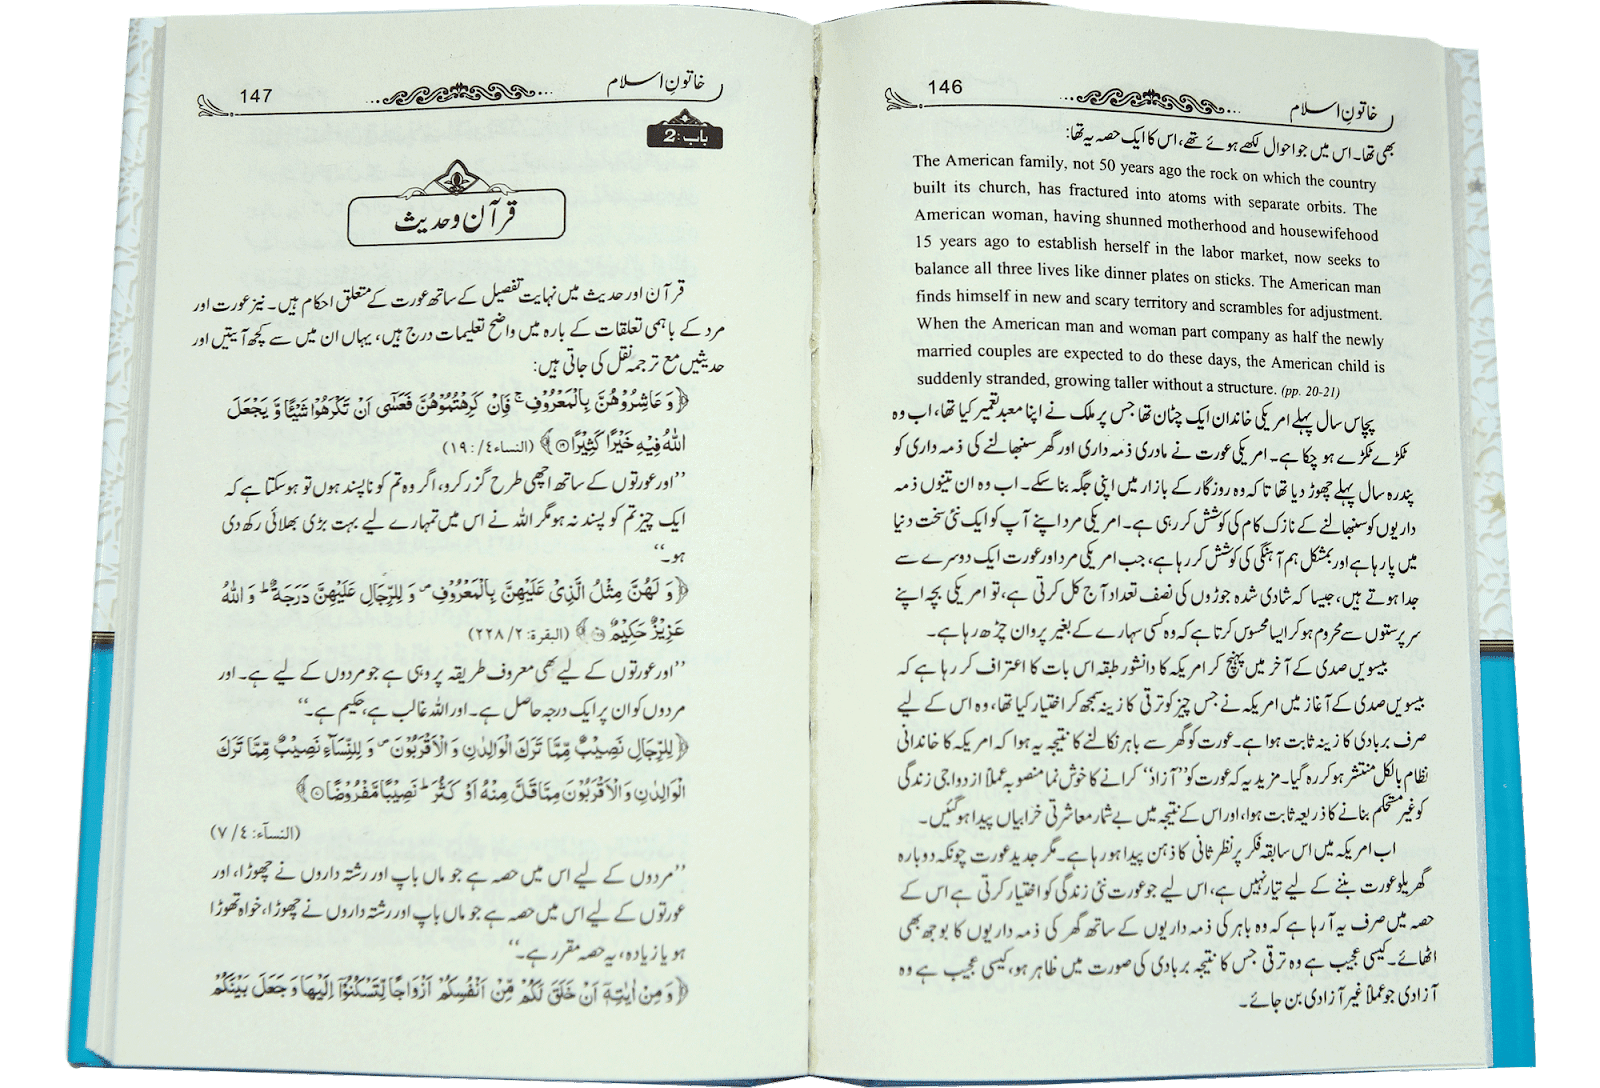 146
خاتونِ اسلام
بھی تھا۔ اس میں جو احوال لکھے ہوئے تھے، اس کا ایک حصہ یہ تھا:
The American family, not 50 years ago the rock on which the country
built its church, has fractured into atoms with separate orbits. The
American woman, having shunned motherhood and housewifehood
15 years ago to establish herself in the labor market, now seeks to
balance all three lives like dinner plates on sticks. The American man
finds himself in new and scary territory and scrambles for adjustment.
When the American man and woman part company as half the newly
married couples are expected to do these days, the American child is
suddenly stranded, growing taller without a structure. (pp. 20-21)
پچاس سال پہلے امریکی خاندان ایک چٹان تھا جس پر ملک نے اپنا معبد تعمیر کیا تھا، اب وہ
ٹکڑے ٹکڑے ہو چکا ہے۔ امریکی عورت نے مادری ذمہ داری اور گھر سنبھالنے کی ذمہ داری کو
پندرہ سال پہلے چھوڑ دیا تھا تاکہ وہ روزگار کے بازار میں اپنی جگہ بنا سکے۔ اب وہ ان تینوں ذمہ
داریوں کو سنبھالنے کے نازک کام کی کوشش کر رہی ہے۔ امریکی مرد اپنے آپ کو ایک نئی سخت دنیا
میں پا رہا ہے اور بمشکل ہم آہنگی کی کوشش کر رہا ہے، جب امریکی مرد اور عورت ایک دوسرے سے
جدا ہوتے ہیں، جیسا کہ شادی شدہ جوڑوں کی نصف تعداد آج کل کرتی ہے، تو امریکی بچہ اپنے
سرپرستوں سے محروم ہو کر ایسا محسوس کرتا ہے کہ وہ کسی سہارے کے بغیر پروان چڑھ رہا ہے۔
بیسویں صدی کے آخر میں پہنچ کر امریکہ کا دانشور طبقہ اس بات کا اعتراف کر رہا ہے کہ
بیسویں صدی کے آغاز میں امریکہ نے جس چیز کو ترقی کا زینہ سمجھ کر اختیار کیا تھا، وہ اس کے لیے
صرف بربادی کا زینہ ثابت ہوا ہے۔ عورت کو گھر سے باہر نکالنے کا نتیجہ یہ ہوا کہ امریکہ کا خاندانی
نظام بالکل منتشر ہو کر رہ گیا۔ مزید یہ کہ عورت کو ”آزاد“ کرانے کا خوش نما منصوبہ عملاً ازدواجی زندگی
کو غیر مستحکم بنانے کا ذریعہ ثابت ہوا، اور اس کے نتیجہ میں بے شمار معاشرتی خرابیاں پیدا ہو گئیں۔
اب امریکہ میں اس سابقہ فکر پر نظر ثانی کا ذہن پیدا ہو رہا ہے۔ مگر جدید عورت چونکہ دوبارہ
گھریلو عورت بننے کے لیے تیار نہیں ہے، اس لیے جو عورت نئی زندگی کو اختیار کرتی ہے اس کے
حصہ میں صرف یہ آ رہا ہے کہ وہ باہر کی ذمہ داریوں کے ساتھ گھر کی ذمہ داریوں کا بوجھ بھی
اٹھائے۔ کیسی عجیب ہے وہ ترقی جس کا نتیجہ بربادی کی صورت میں ظاہر ہو، کیسی عجیب ہے وہ
آزادی جو عملاً غیر آزادی بن جائے۔
147
خاتونِ اسلام
باب: 2
قرآن و حدیث
قرآن اور حدیث میں نہایت تفصیل کے ساتھ عورت کے متعلق احکام ہیں۔ نیز عورت اور
مرد کے باہمی تعلقات کے بارہ میں واضح تعلیمات درج ہیں، یہاں ان میں سے کچھ آیتیں اور
حدیثیں مع ترجمہ نقل کی جاتی ہیں:
﴿وَ عَاشِرُوْهُنَّ بِالْمَعْرُوْفِ ۚ فَاِنْ كَرِهْتُمُوْهُنَّ فَعَسٰۤى اَنْ تَكْرَهُوْا شَيْـًٔا وَّ يَجْعَلَ
اللّٰهُ فِيْهِ خَيْرًا كَثِيْرًا ۝۱۹﴾ (النساء ٤/ :١٩)
”اور عورتوں کے ساتھ اچھی طرح گزر کرو، اگر وہ تم کو ناپسند ہوں تو ہو سکتا ہے کہ
ایک چیز تم کو پسند نہ ہو مگر اللہ نے اس میں تمہارے لیے بہت بڑی بھلائی رکھ دی
ہو۔“
﴿وَ لَهُنَّ مِثْلُ الَّذِيْ عَلَيْهِنَّ بِالْمَعْرُوْفِ ۪ وَ لِلرِّجَالِ عَلَيْهِنَّ دَرَجَةٌ ؕ وَ اللّٰهُ
عَزِيْزٌ حَكِيْمٌ ۝﴾ (البقرة: ٢/ ٢٢٨)
”اور عورتوں کے لیے بھی معروف طریقہ پر وہی ہے جو مردوں کے لیے ہے۔ اور
مردوں کو ان پر ایک درجہ حاصل ہے۔ اور اللہ غالب ہے، حکیم ہے۔“
﴿لِلرِّجَالِ نَصِيْبٌ مِّمَّا تَرَكَ الْوَالِدٰنِ وَ الْاَقْرَبُوْنَ ۪ وَ لِلنِّسَآءِ نَصِيْبٌ مِّمَّا تَرَكَ
الْوَالِدٰنِ وَ الْاَقْرَبُوْنَ مِمَّا قَلَّ مِنْهُ اَوْ كَثُرَ ؕ نَصِيْبًا مَّفْرُوْضًا ۝﴾
(النسآء: ٤/ ٧)
”مردوں کے لیے اس میں حصہ ہے جو ماں باپ اور رشتہ داروں نے چھوڑا، اور
عورتوں کے لیے اس میں حصہ ہے جو ماں باپ اور رشتہ داروں نے چھوڑا، خواہ تھوڑا
ہو یا زیادہ، یہ حصہ مقرر ہے۔“
﴿وَ مِنْ اٰيٰتِهٖۤ اَنْ خَلَقَ لَكُمْ مِّنْ اَنْفُسِكُمْ اَزْوَاجًا لِّتَسْكُنُوْۤا اِلَيْهَا وَ جَعَلَ بَيْنَكُمْ